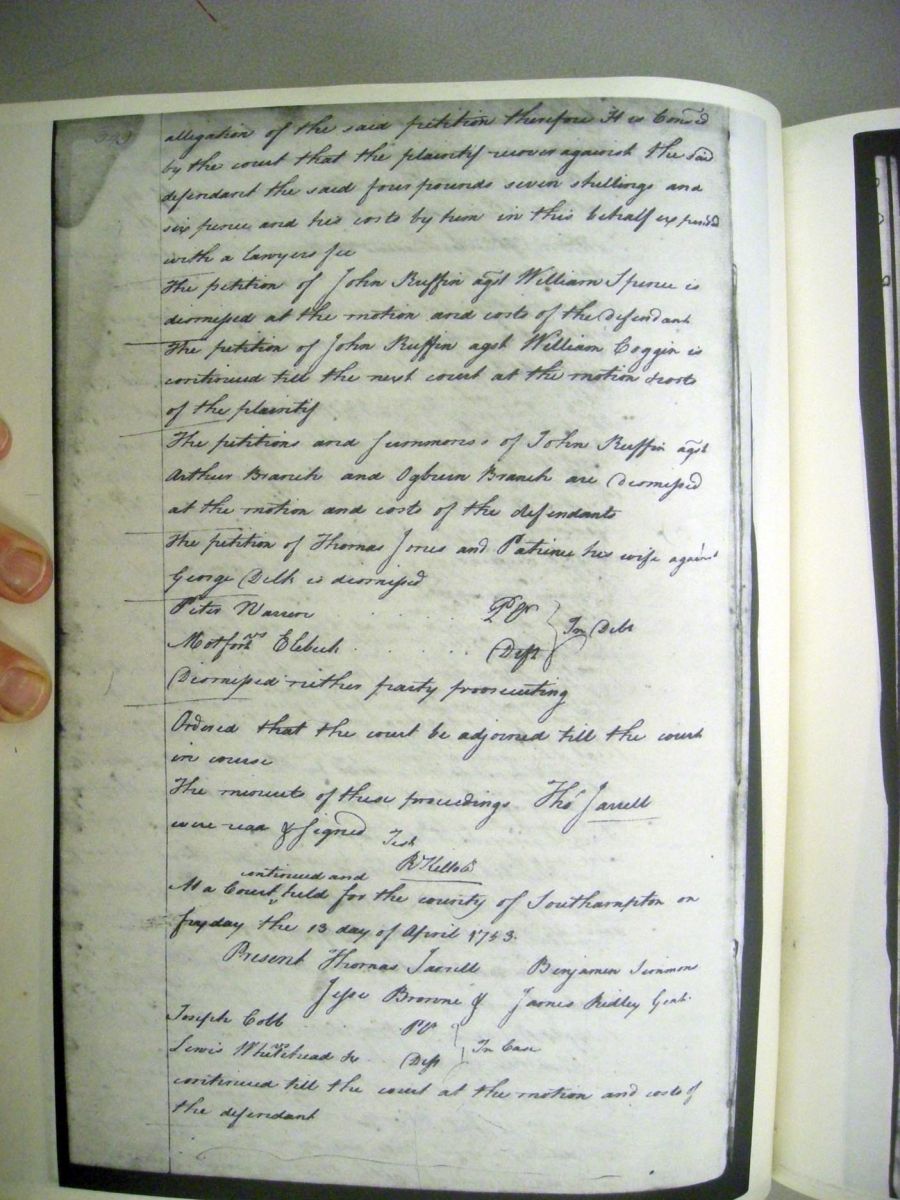 349
allegation of the said petition therefore It is Consd
by the court that the plaintif recover against the said
defendant the said four pounds seven shillings and
six pence and his costs by him in this behalf expended
with a lawyers fee
The petition of John Ruffin agst William Spence is
dismissed at the motion and costs of the Defendant
The petition of John Ruffin agst William Coggin is
continued till the next court at the motion & costs
of the plaintif
The petitions and Summons's of John Ruffin agst
Arthur Branch and Ogburn Branch are Dismissed
at the motion and costs of the defendants
The petition of Thomas Jones and Patience his wife against
George Delk is dismissed
Peter Warren Plr
vs In Debt
Motforn Elebeck Deft
Dismissed neither party proosecuting
Ordered that the court be adjorned till the court
in course
The minuets of these proceedings Thos Jarrell
were read & Signed
Test
R Kello Ck
At a Court continued and held for the county of Southampton on
fryday the 13 day of April 1753.
Present Thomas Jarrell Benjamin Simmons
Jesse Browne & James Ridley Gent.
Joseph Cobb Plr
vs In Case
Lewis Whitehead Deft
continued till the court at the motion and costs of
the defendant